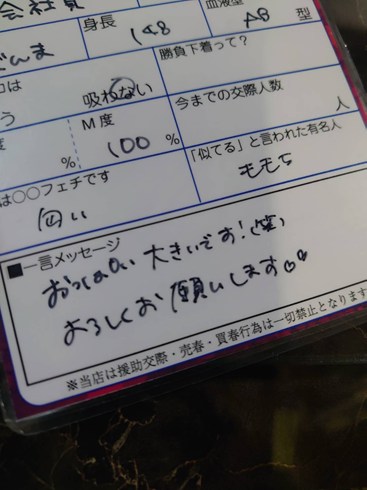 会社員
身長 148
血液型 AB 型
勝負下着って?
吸わない
今までの交際人数
人
M度
100 %
%
「似てる」と言われた有名人
ももち
は○○フェチです
匂い
■一言メッセージ
おっぱい大きいです!(笑)
よろしくお願いします♡♡
※当店は援助交際・売春・買春行為は一切禁止となります